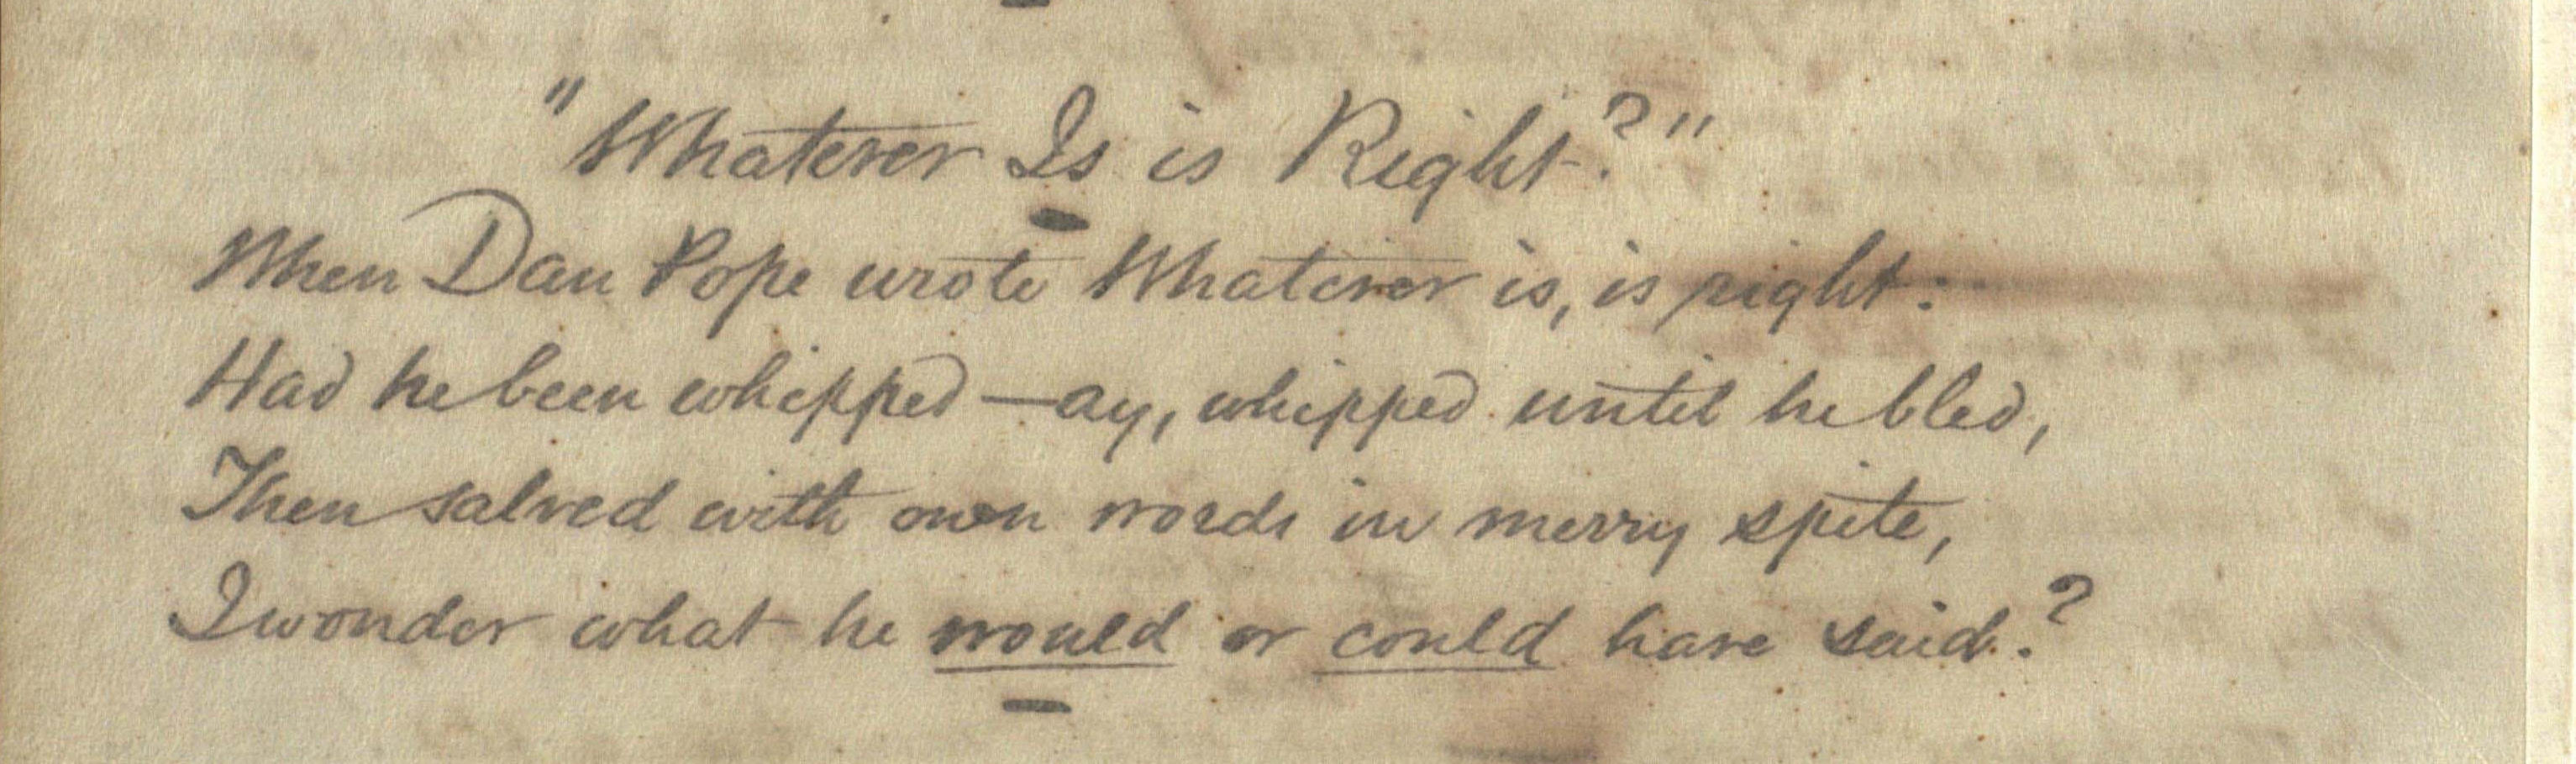 "Whatever Is is Right?"
When Dan Pope wrote Whatever is, is right:
Had he been whipped — ay, whipped until he bled,
Then salved with own words in merry spite,
I wonder what he would or could have said?